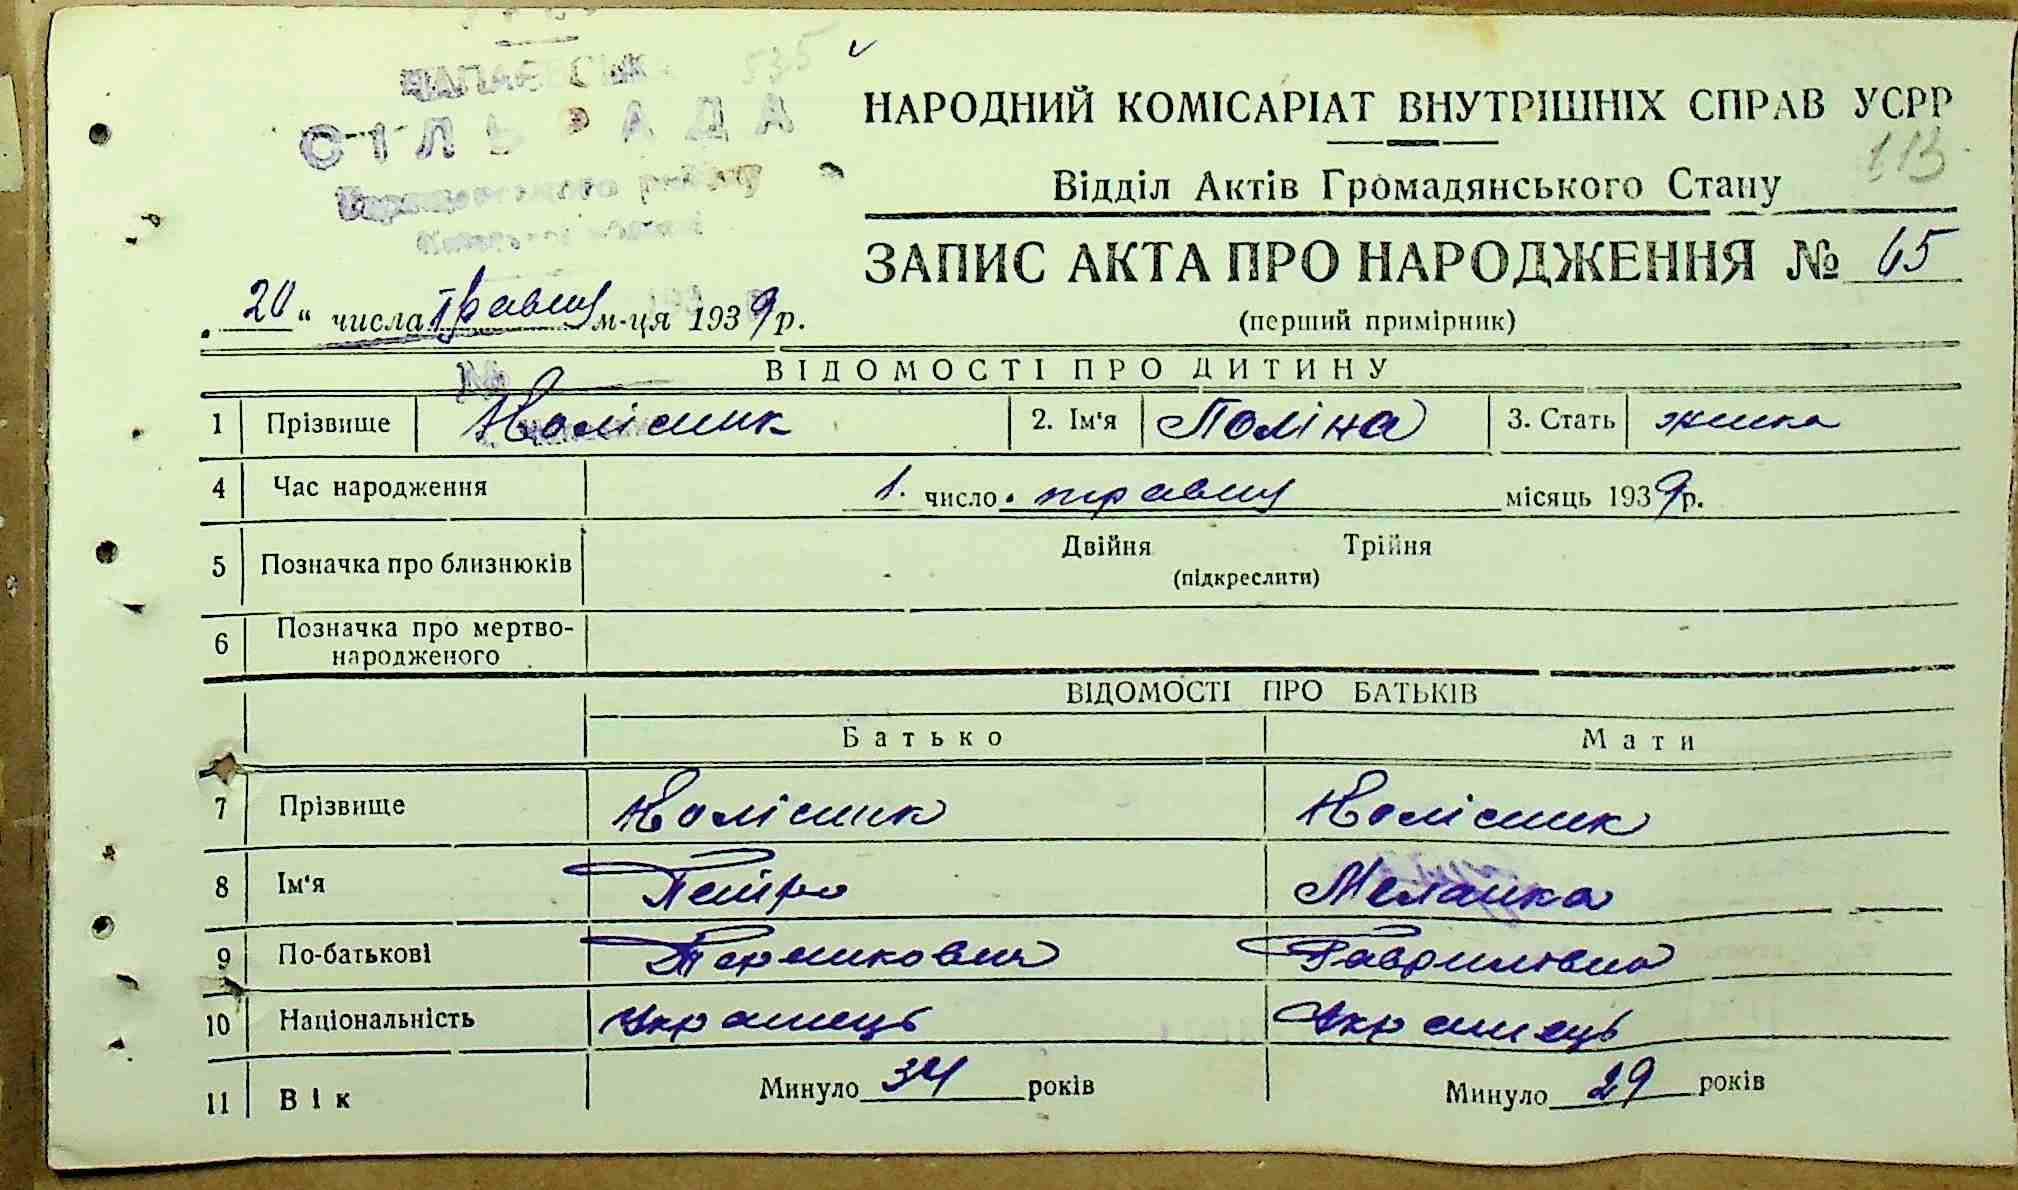 535
СІЛЬРАДА
району
НАРОДНИЙ КОМІСАРІАТ ВНУТРІШНІХ СПРАВ УСРР
113
Відділ Актів Громадянського Стану
ЗАПИС АКТА ПРО НАРОДЖЕННЯ № 65
„20“ числа травня м-ця 1939 р.
(перший примірник)
ВІДОМОСТІ ПРО ДИТИНУ
1 Прізвище Колісник 2. Ім'я Поліна 3. Стать жінка
4 Час народження 1. число травня місяць 1939 р.
5 Позначка про близнюків Двійня Трійня
(підкреслити)
6 Позначка про мертво-
народженого
ВІДОМОСТІ ПРО БАТЬКІВ
Батько Мати
7 Прізвище Колісник Колісник
8 Ім'я Петро Меланка
9 По-батькові Гаврилівна
10 Національність Українець Українець
11 Вік Минуло 34 років Минуло 29 років